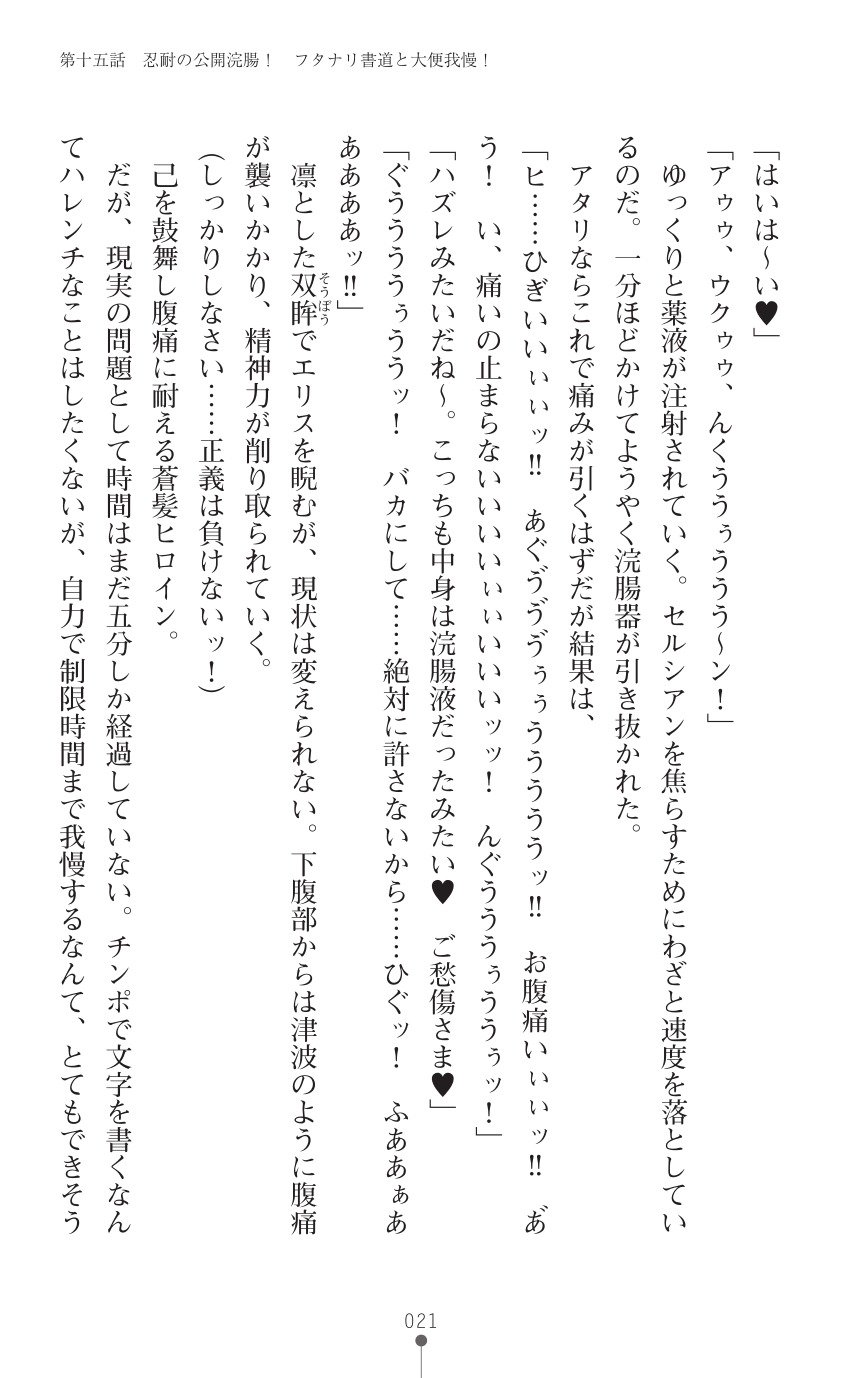 第十五話　忍耐の公開浣腸！　フタナリ書道と大便我慢！
「はいは～い♥」
「アゥゥ、ウクゥゥ、んくううぅううう～ン！」
　ゆっくりと薬液が注射されていく。セルシアンを焦らすためにわざと速度を落としてい
るのだ。一分ほどかけてようやく浣腸器が引き抜かれた。
　アタリならこれで痛みが引くはずだが結果は、
「ヒ……ひぎいいぃぃッ‼　あぐゔゔゔぅぅうううううッ‼　お腹痛いぃぃッ‼　あ゙
う！　い、痛いの止まらないいいいぃぃいいいッッ！　んぐうううぅううぅッ！」
「ハズレみたいだね～。こっちも中身は浣腸液だったみたい♥　ご愁傷さま♥」
「ぐううううぅううッ！　バカにして……絶対に許さないから……ひぐッ！　ふああぁあ
ああああッ‼」
　凛とした双眸でエリスを睨むが、現状は変えられない。下腹部からは津波のように腹痛
そうぼう
が襲いかかり、精神力が削り取られていく。
（しっかりしなさい……正義は負けないッ！）
　己を鼓舞し腹痛に耐える蒼髪ヒロイン。
　だが、現実の問題として時間はまだ五分しか経過していない。チンポで文字を書くなん
てハレンチなことはしたくないが、自力で制限時間まで我慢するなんて、とてもできそう
021